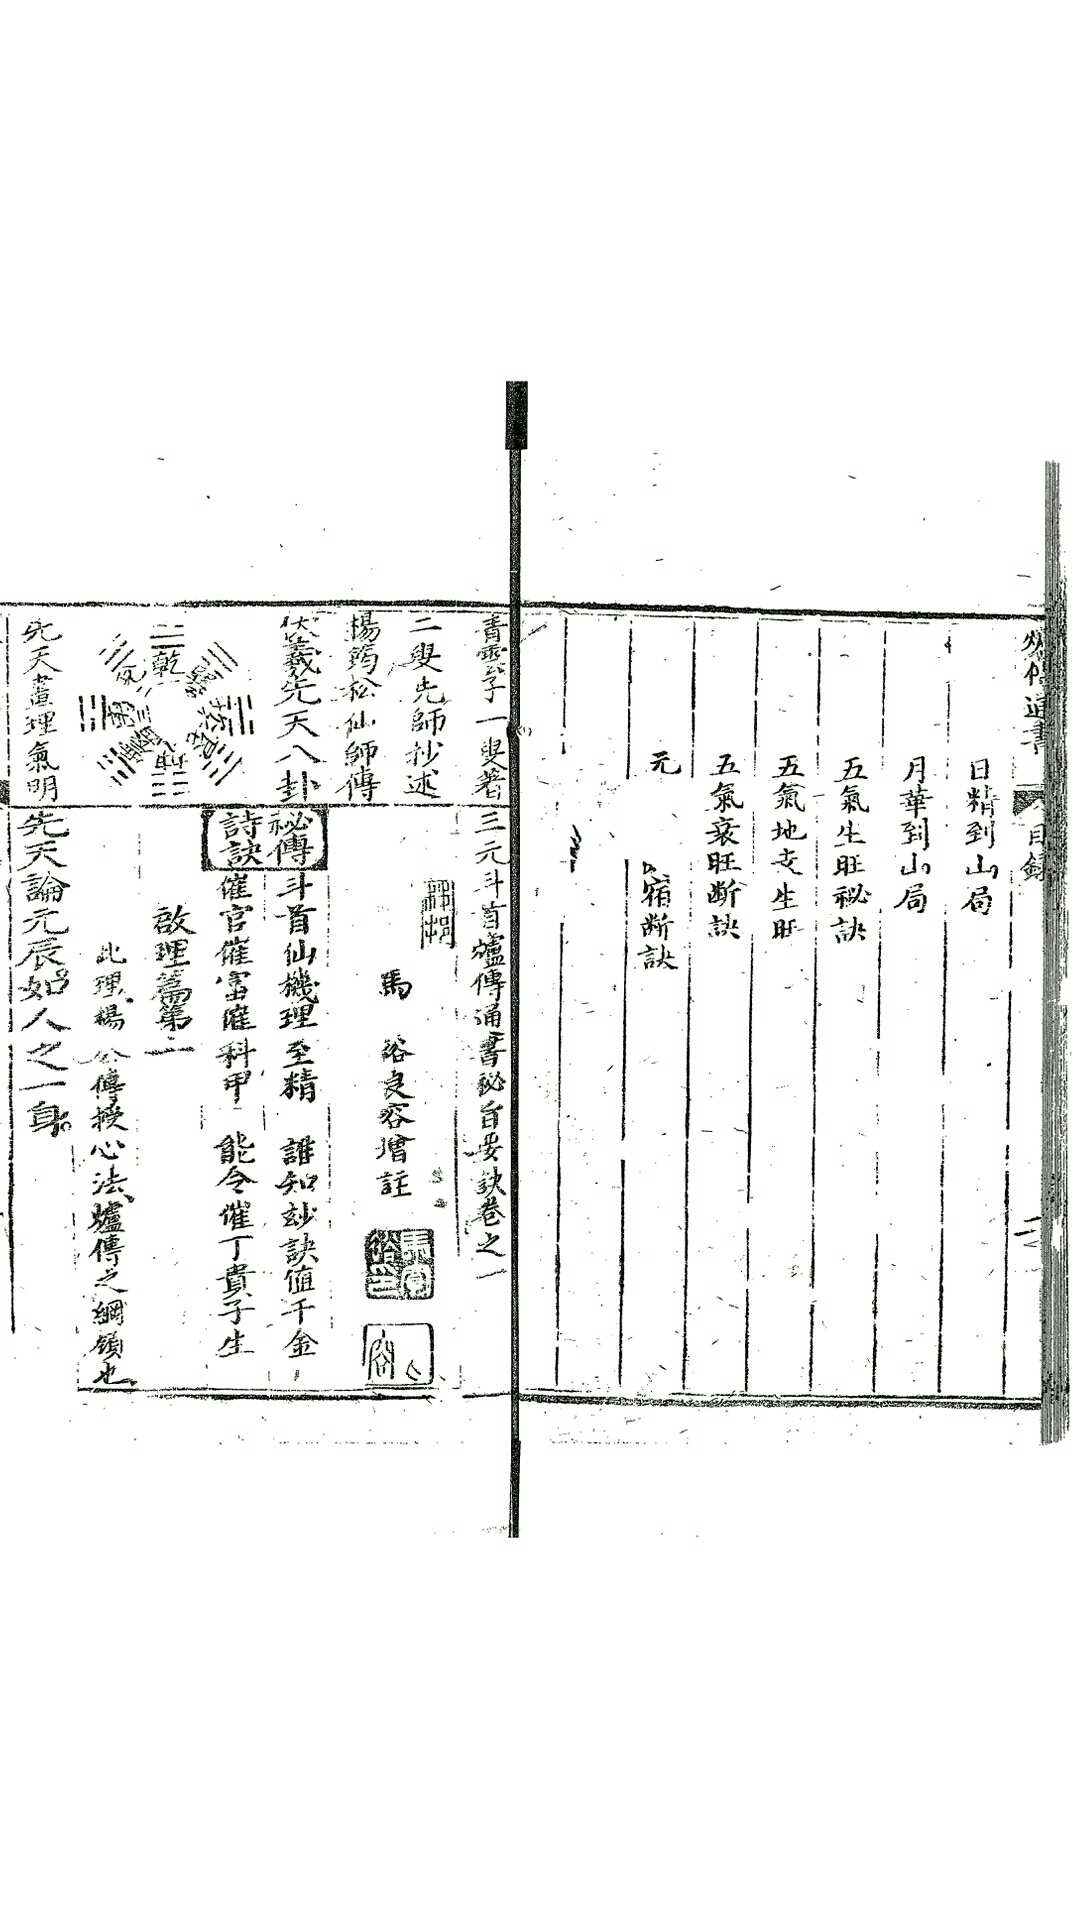 傳通書
目錄
日精到山局
月華到山局
五氣生旺秘訣
五氣地支生旺
五氣衰旺断訣
元
宿断訣
二
青雲子一叟著
二叟先師抄述
楊筠松仙師傳
伏羲先天八卦
乾
先天畫理氣明
三元斗首爐傳通書秘旨要訣卷之一
馬
裕良容增註
秘傳
詩訣
斗首仙機理至精 誰知玅訣值千金
催官催富催科甲 能令催丁貴子生
啟理篇第一
此理楊公傳授心法爐傳之綱領也
先天論元辰如人之一身